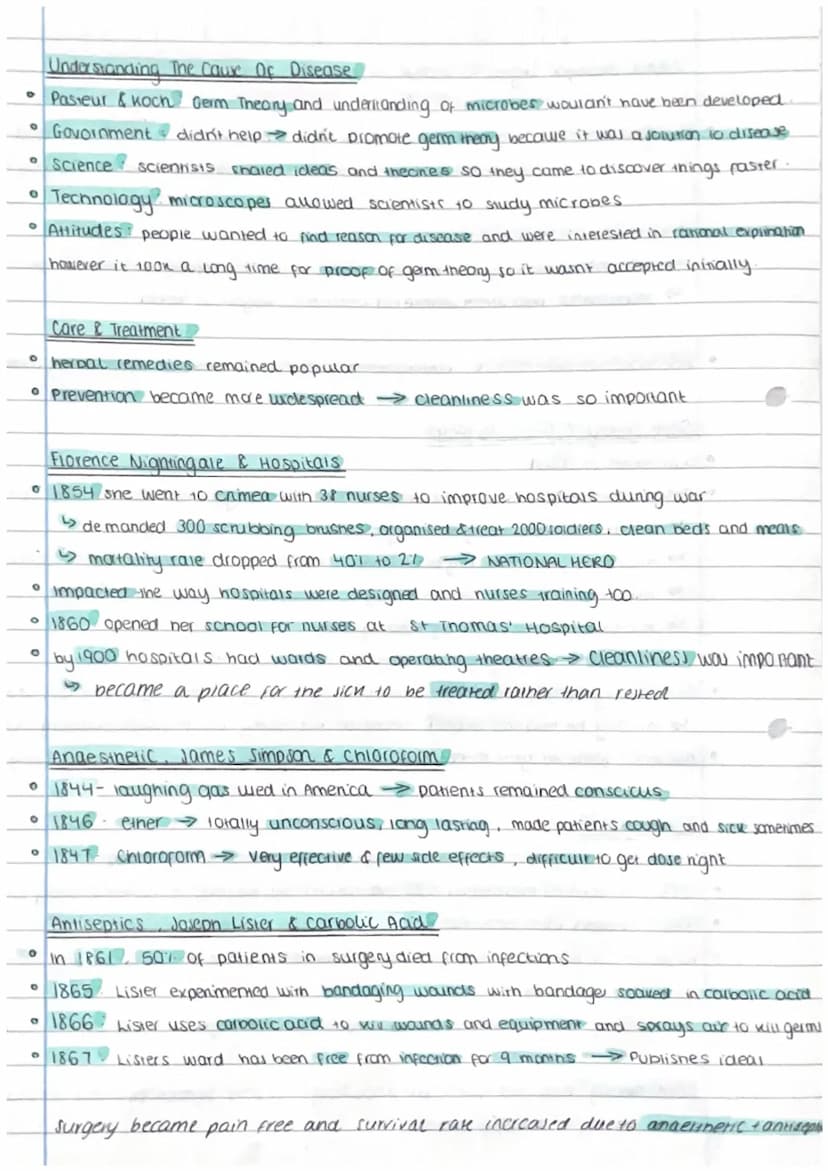 Understanding The Cause Of Disease
• Pasteur & Koch: Germ Theory and understanding of microbes wouldn't have been developed.
• Government: didn't help → didn't promote germ theory because it was a solution to disease
• Science: scientists shared ideas and theories so they came to discover things faster.
• Technology: microscopes allowed scientists to study microbes
• Attitudes: people wanted to find reason for disease and were interested in rational explination
however it took a long time for proof of germ theory so it wasn't accepted initially.
Care & Treatment
• herbal remedies remained popular
• Prevention became more widespread → cleanliness was so important
Florence Nightingale & Hospitals
• 1854 she went to Crimea with 38 nurses to improve hospitals during war
↳ demanded 300 scrubbing brushes, organised & treat 2000 soldiers, clean beds and meals
↳ mortality rate dropped from 40% to 2% → NATIONAL HERO
• Impacted the way hospitals were designed and nurses training too.
• 1860 opened her school for nurses at St Thomas' Hospital
• by 1900 hospitals had wards and operating theatres → Cleanliness was important
↳ became a place for the sick to be treated rather than rested
Anaesthetic, James Simpson & Chloroform
• 1844 - laughing gas used in America → patients remained conscious
• 1846 - ether → totally unconscious, long lasting, made patients cough and sick sometimes
• 1847 - Chloroform → very effective & few side effects, difficult to get dose right
Antiseptics, Joseph Lister & Carbolic Acid
• In 1861, 50% of patients in surgery died from infections
• 1865: Lister experimented with bandaging wounds with bandages soaked in carbolic acid
• 1866: Lister uses carbolic acid to wounds and equipment and sprays air to kill germs
• 1867: Listers ward has been free from infection for 9 months → Publishes ideas
surgery became pain free and survival rate increased due to anaesthetic + antisep